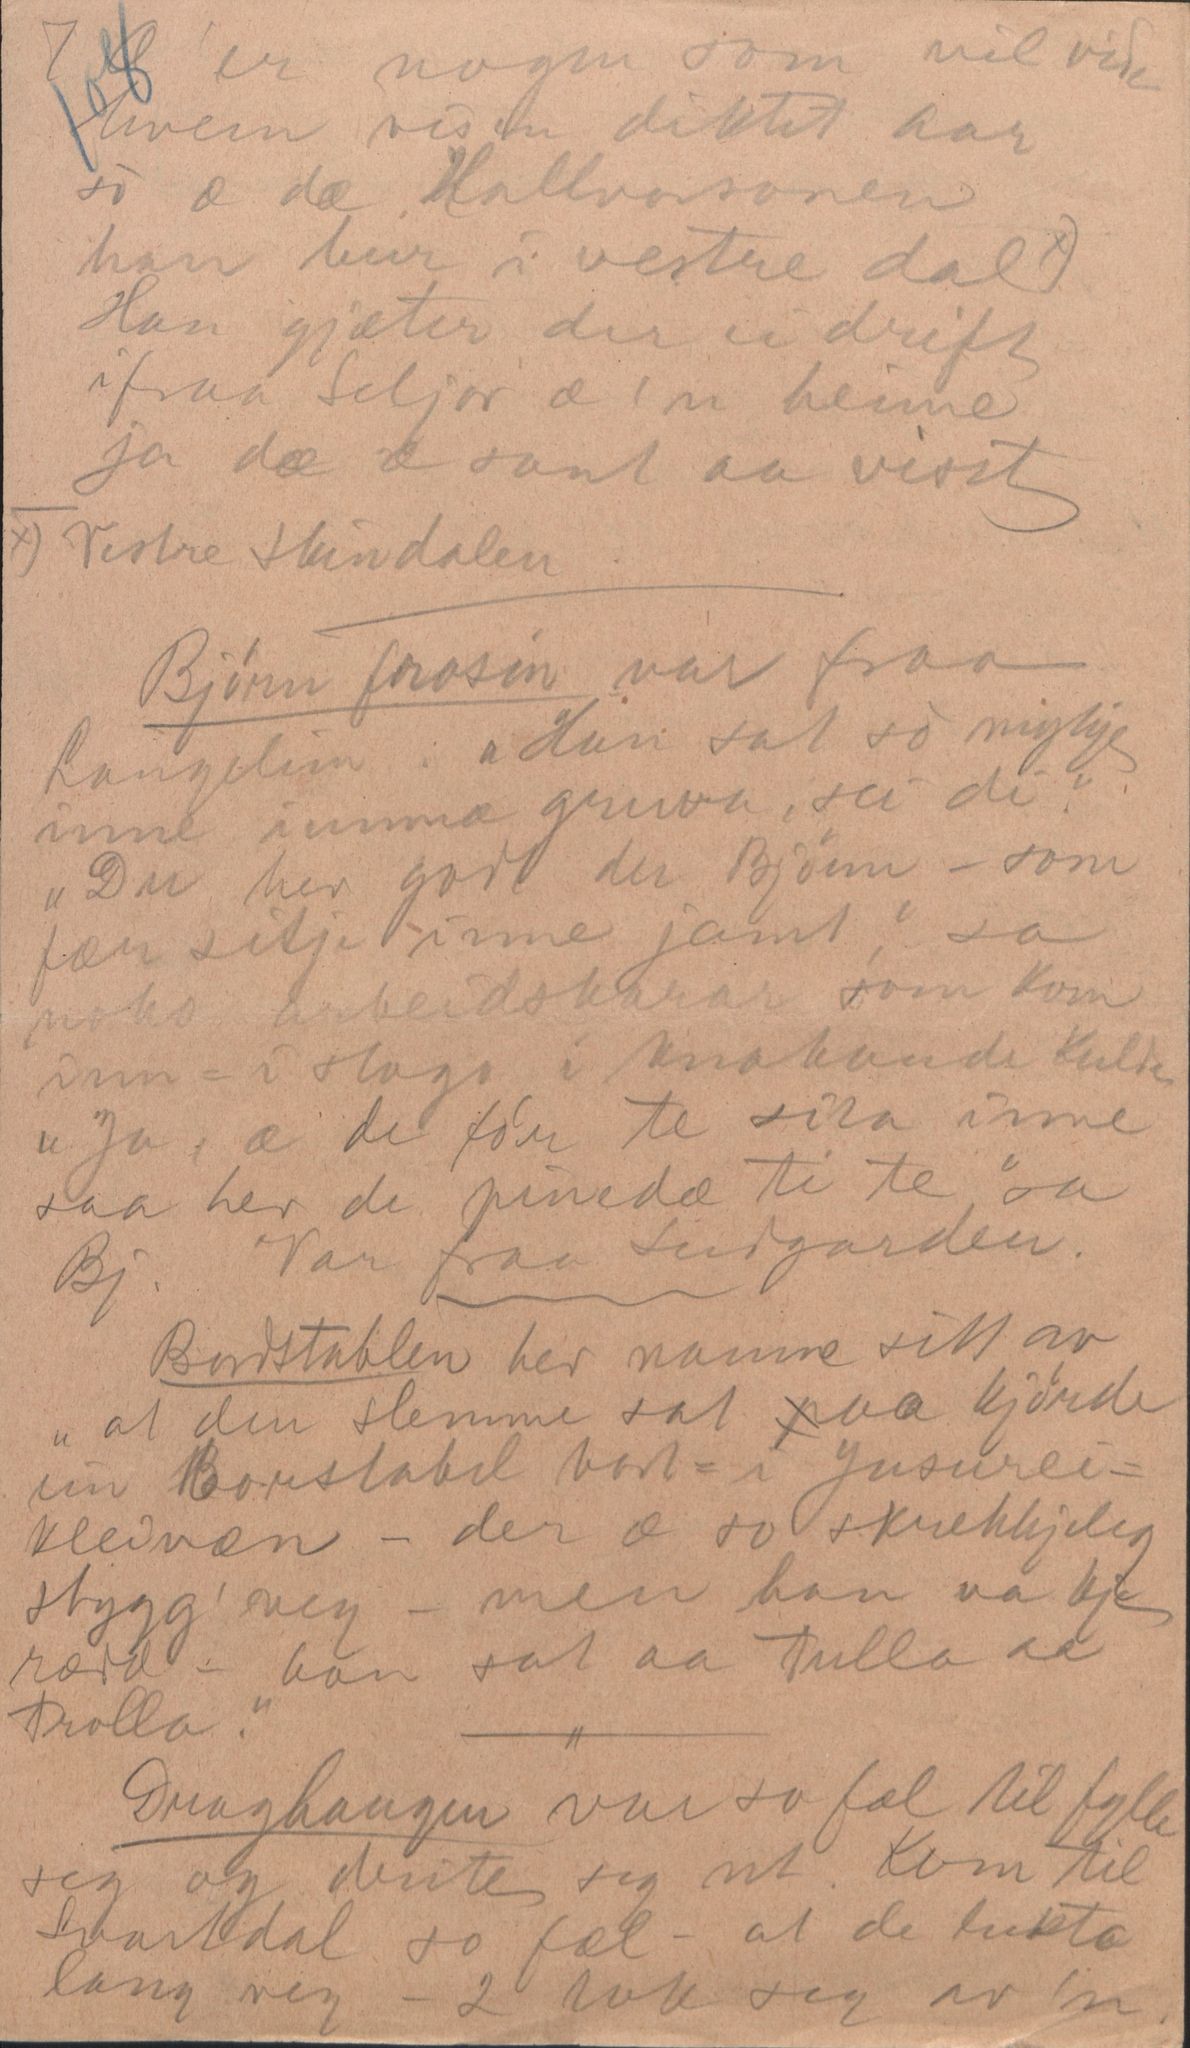 7 E' er nogen som vil vide
108
hvem visen diktet har
so æ dæ Hallvorsonen
han bur i vestre dal x)
Han gjæter der ei drift
ifraa Seljor æ 'n heime
ja dæ æ sant aa visst
x) Vestre Skindalen
Björn frosin var fraa
Langelim. "Han sat so mykje
inne imma gruva, sei di".
"Du hev godt du Björn – som
fær sitje inne jamt," sa
noko arbeidskarar som kom
inn = i stogo i knakande kulde
"Ja, æ de för te sita inne
saa hev de pinedæ ti te" sa
Bj. Var fraa Sudgarden.
Bordstabben hev namne sitt av
"at den slemme sat paa kjörde
ein Borstabel bort = i Jusurei=
kleivæn – der æ so skrekkjeleg
stygg' veg – men han va kje
rædd – han sat aa tulla aa
trolla."
"
Draghaugen var so fæl til fylle
seg og drite seg ut. Kom til
Svartdal so fæl – at de lukta
lang veg – 2 tok seg av 'n.